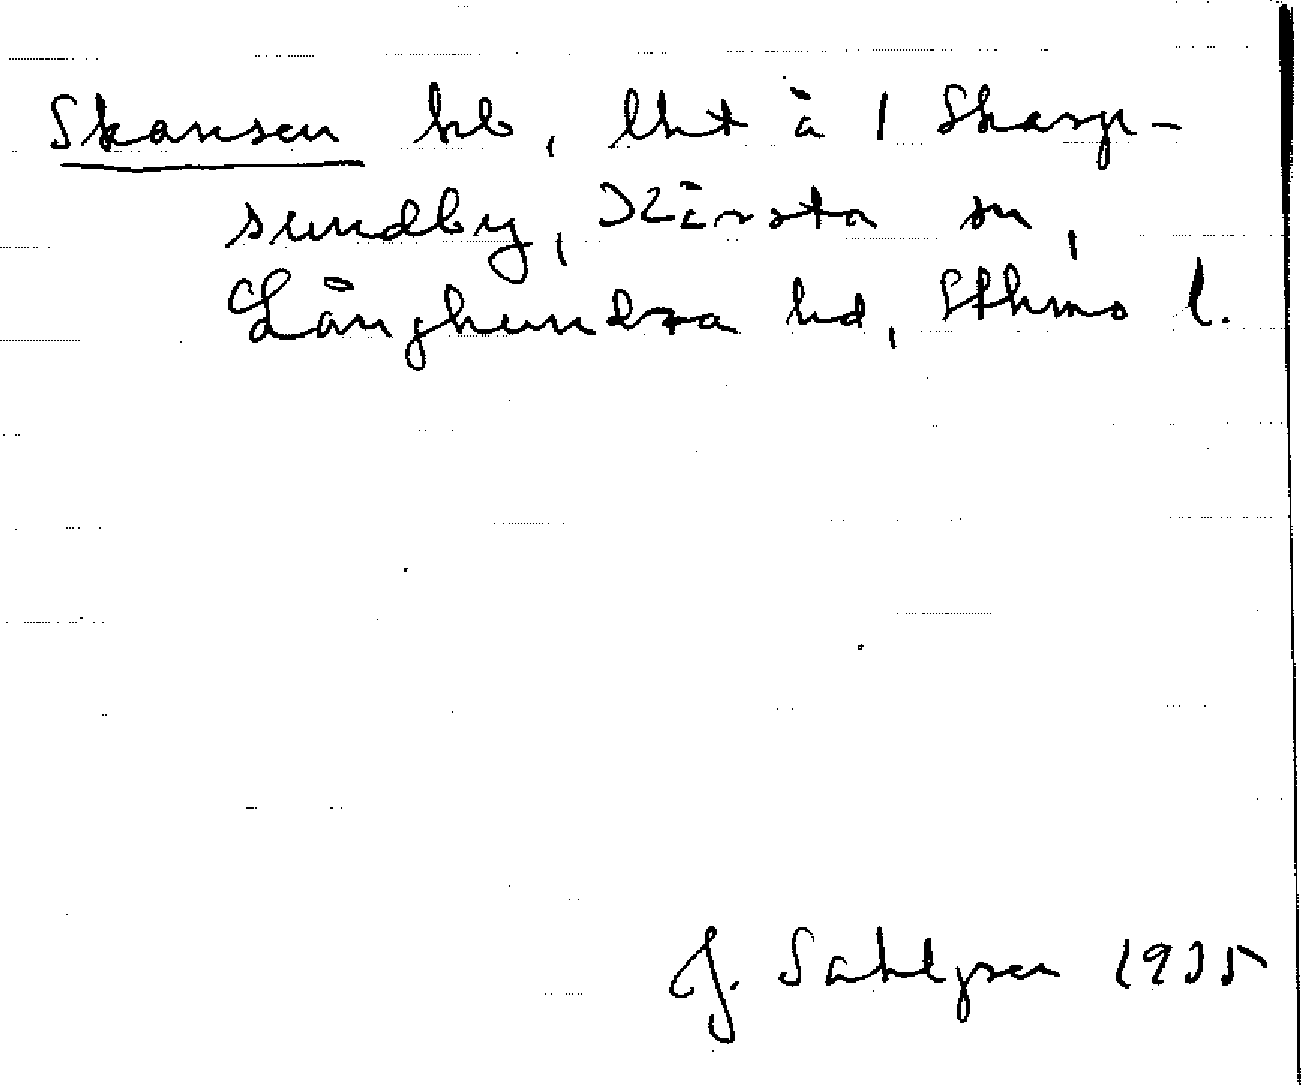 Skansen hb, lht å 1 Skarp-
sundby, Kårsta sn,
Långhundra hd, Sthms l.
J. Sahlgren 1935